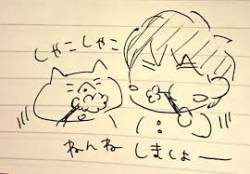 しゃこしゃこ
ねんね しましょー